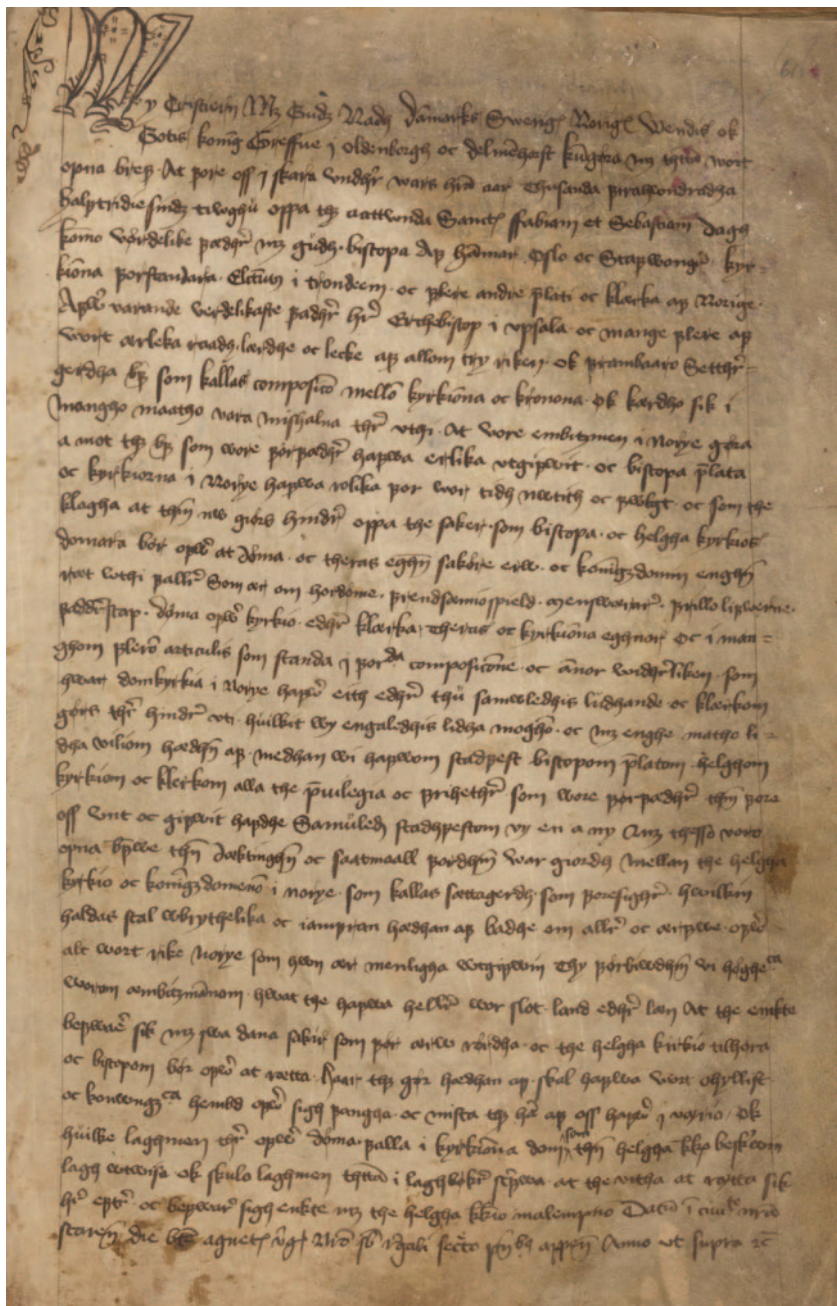 Wy Cristiern Mz Gudz Nadh Danmarks Swerigꝭ Norigꝭ Wendis ok
Gotis konīg Greffue j oldenborgh oc delmēhorst kūgøra mz thette wort
opna breff At fore oss j skara vndhr̄ wars hr̄ra aar Thusanda firahwndradha
halffemdiesindz tiwoghu oppa thz aattonda Sanctꝭ ffabiani et Sebastiani dagh
komo værdelike fædhr̄ mz gudh biscopa aff hāmar Oslo oc Staffwangr̄ kyr=
kiōna forstandara Electus i trondeem oc flere andre p̄lati oc klærka aff Norige
Offw̄ varande verdelikaste fadhr̄ hr̄ Erchebiscop i vpsala oc mange flere aff
wort ærleka raadh lærdhe oc lecke aff allom try riken ok frambaaro Setthr̄=
gerdha bff som kallas composicō mellō kyrkiōna oc kronona Ok kærdho sik i
mangho maatho vara mishalna thr̄ vthi At wore embitzmen i Norye gøra
a mot thz bff som wore forfædhr̄ haffwa erlika vtgiffwit oc biscopa p̄lata
oc kyrkiorna i Norye haffwa rolika for wor tidh nwtith oc fwlgt oc som the
klagha at thm̄ nw giørs hindr̄ oppa the saker som biscopa oc helgha kyrkios
domara bør offw̄ at døma oc theras eghn̄ sakøre erw oc konūgzdomin enghn̄
ræt wthi fallr̄ Som ær om hordome frendsæmiospield menswærar̄ frillo liffwerne
faddr̄scap døma offw̄ kyrkio edhr̄ klærka theras oc kyrkiōna eghnor Oc i man=
ghom flerō articulis som standa j forda composicōne oc ānor widhr̄liken som
hwar domkyrkia i Norye haffw̄ eith edhr̄ thu samwledhis lidhande oc klærkom
gørs thr̄ hindr̄ vti huilkit wy engaledhis lidha moghō oc mz enghe matho li=
dha viliom hædhn̄ aff medhan wi haffwom stadfest biscopom p̄latom helghom
kyrkiom oc klerkom alla the p̄uilegia oc frihethr̄ som wore forfædhr̄ thm̄ fore
oss vnt oc giffwit hafdhe Samuledz stadhfestom vy en a ny mz thesso voro
opna bffwe thn̄ dæktinghn̄ oc saatmaall fordhm̄ war giordh mellan the helgha
kyrkio oc konūgzdomenō i norye som kallas sættagerdh som foresighr̄ hwilkin
haldas skal wbrythelika oc iamfran hædhan aff badhe om allr̄ oc ærffwe offw̄
alt wort rike Norye som hwn ær menligha wtgiffwin Thy forbiwdhm̄ vi høghelica
worom æmbitzmānom hwat the haffwa hellr̄ wor slot land edhr̄ læn At the enkte
beffwær̄ sik mz swa dana sakir som før ærw rørdha oc the helgha kirkio tilhøra
oc biscopom bør offw̄ at rætta Hwar thz gør hædhan aff skal haffwa wort ohyllist
oc konwngzlica hemd offw̄ sigh fangha oc mista thz hā aff oss haffw̄ j wærio Ok
huilke laghmen thr̄ offw̄ døma falla i kyrkiōna dom som thn̄ helgha kkꝭ beskrēwin
lagh wtwisa Ok skulo laghmen thetta i laghbøkr̄ scriffwa at the vitha at rætta sik
hr̄ eptr̄ oc beffwar̄ sigh enkte mz the helgha kkio malempno Datū ī ciuitate nr̄a
scaren̄ die bte agnetꝭ v̄gꝭ Nr̄o sb r̄gali secr̄to pn̄bꝫ appen̄ Anno vt supra ꝛc̄